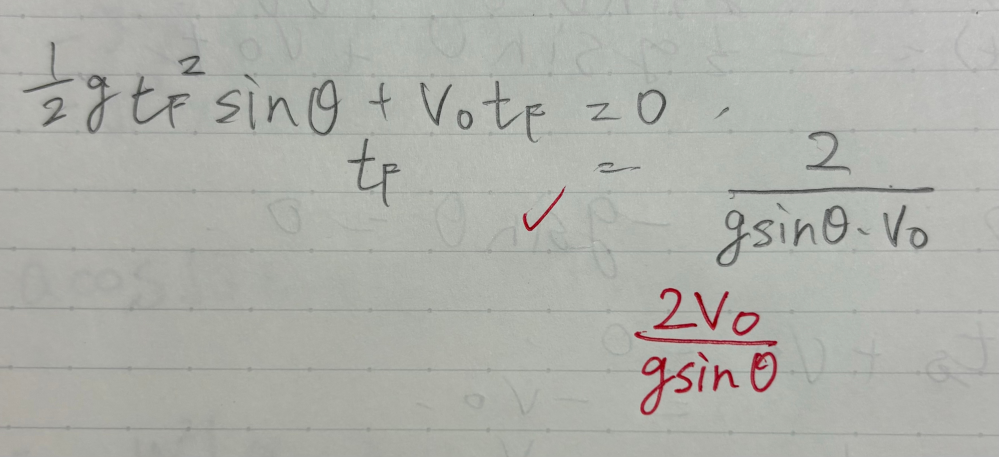 ½gt_F² sinθ + V₀t_F = 0.
t_F = 2/(g sinθ · V₀)
✓
2V₀/(g sinθ)